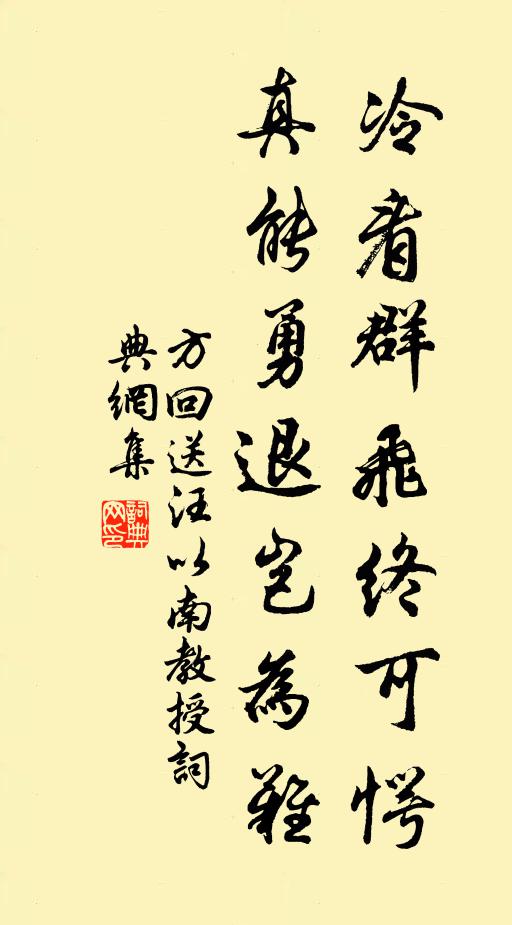 冷看群飛終可愕
真能勇退豈為難
方回送汪以南教授詞
典網集
詞典
网印